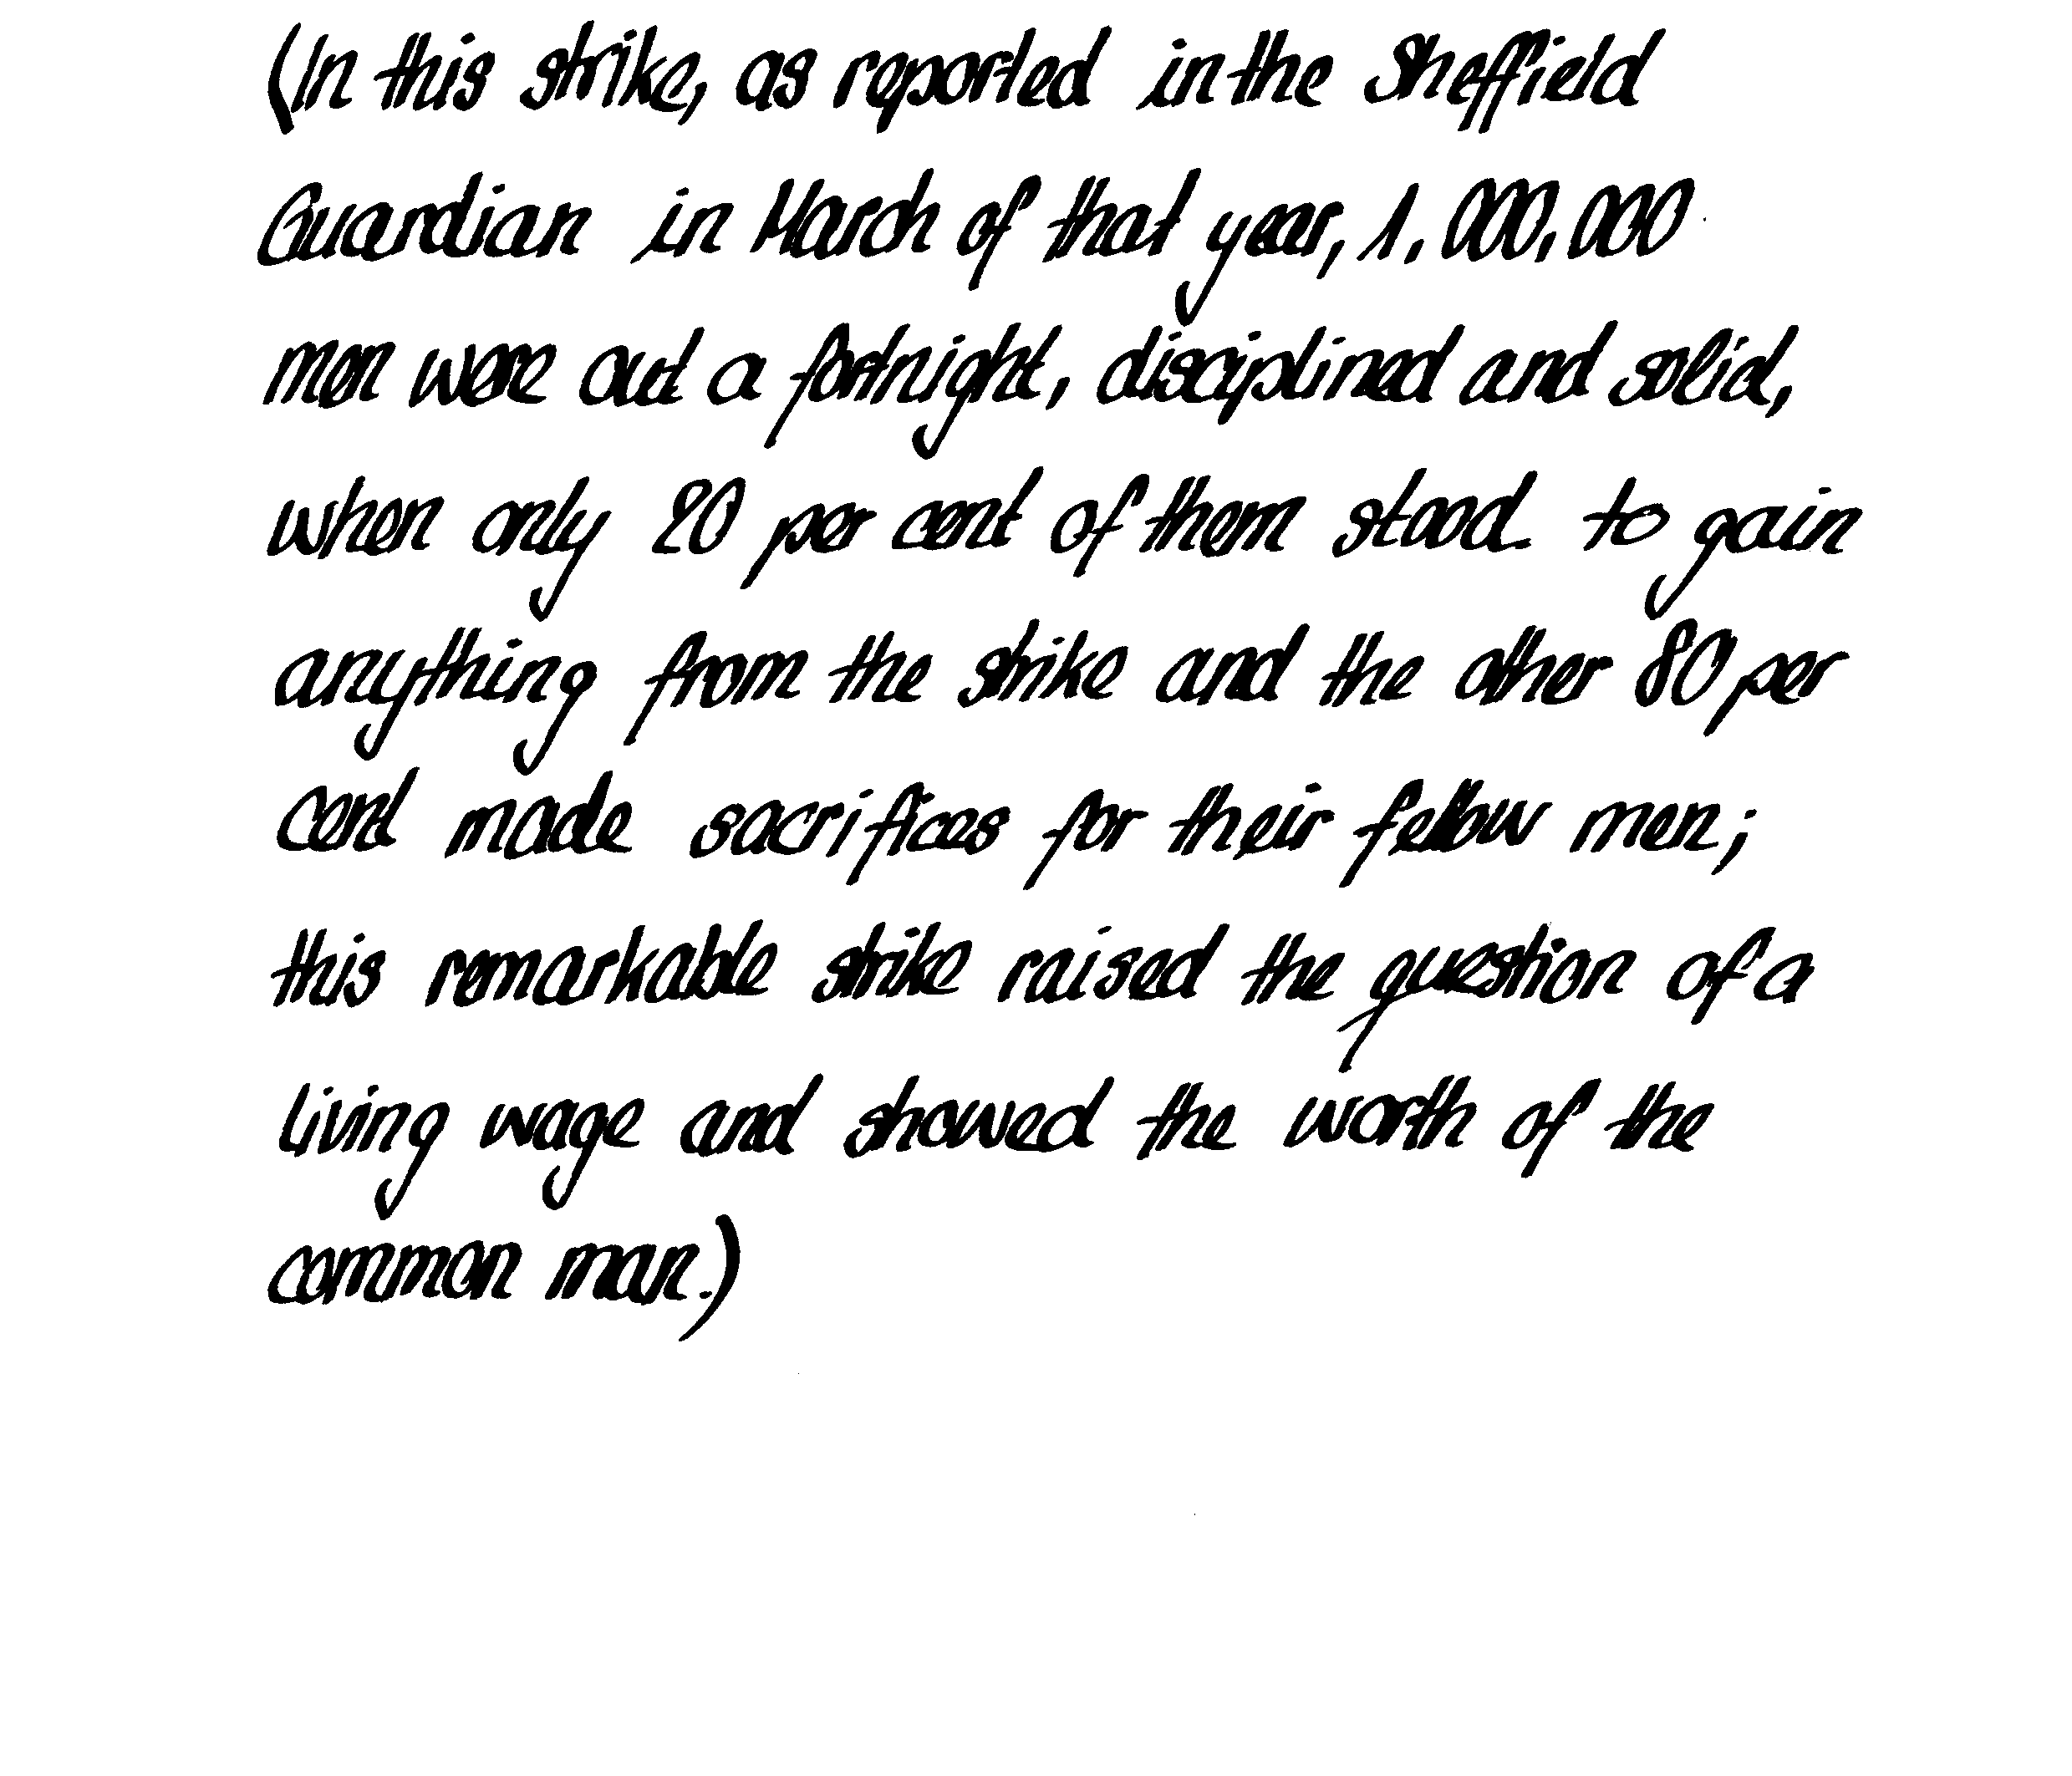 (In this strike, as reported in the Sheffield
Guardian in March of that year, 1,000,000
men were out a fortnight, disciplined and solid,
when only 20 per cent of them stood to gain
anything from the strike and the other 80 per
cent made sacrifices for their fellow men;
this remarkable strike raised the question of a
living wage and showed the worth of the
common man.)